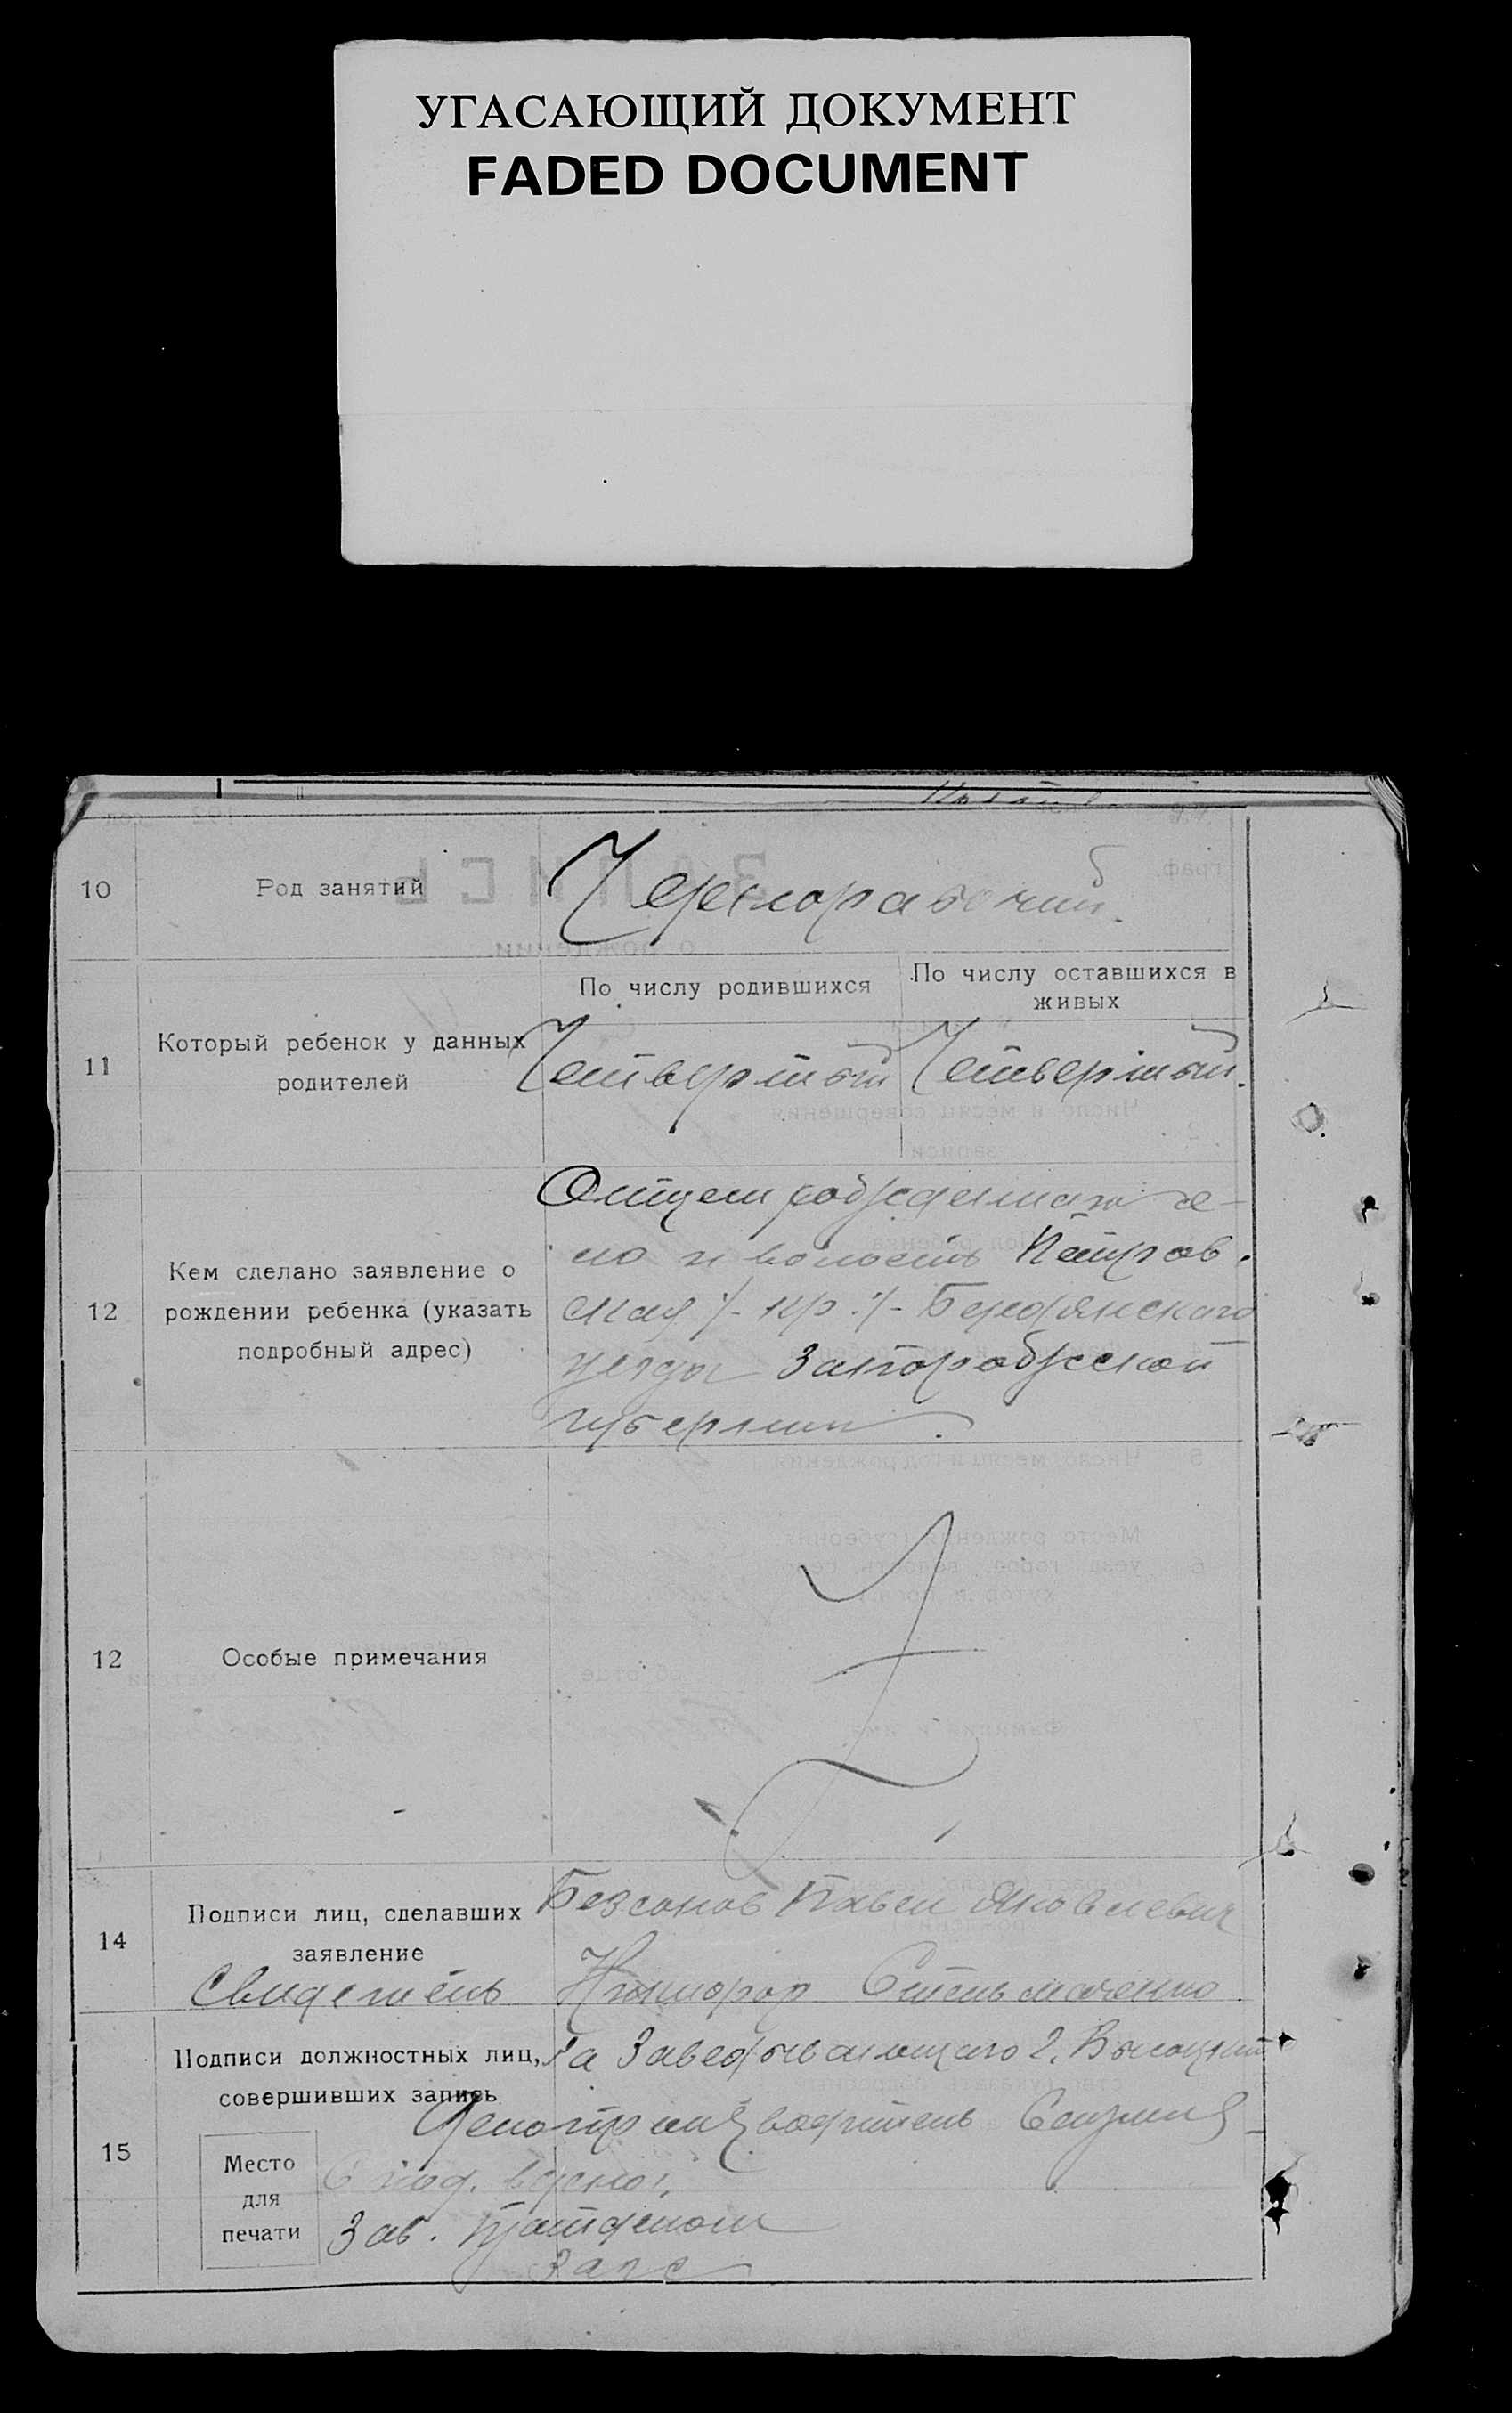 УГАСАЮЩИЙ ДОКУМЕНТ
FADED DOCUMENT
10
Род занятий
Чернорабочий.
11
Который ребенок у данных
родителей
По числу родившихся
Четвертый
По числу оставшихся в
живых
Четвертый.
12
Кем сделано заявление о
рождении ребенка (указать
подробный адрес)
Отцем рожденнаго се-
ло и волость Петров.
ская /- кр :/- Бердянскаго
уезда Запорожской
губернии.
12
Особые примечания
14
Подписи лиц, сделавших
заявление
Свидетель
Безсонов Павел Яковлевич
Никифор Стельмаченко
15
Подписи должностных лиц,
совершивших запись
За Заведывающаго
Делопроизводитель
Место
для
печати
С под. верно:
Зав. Подотделом
Загс